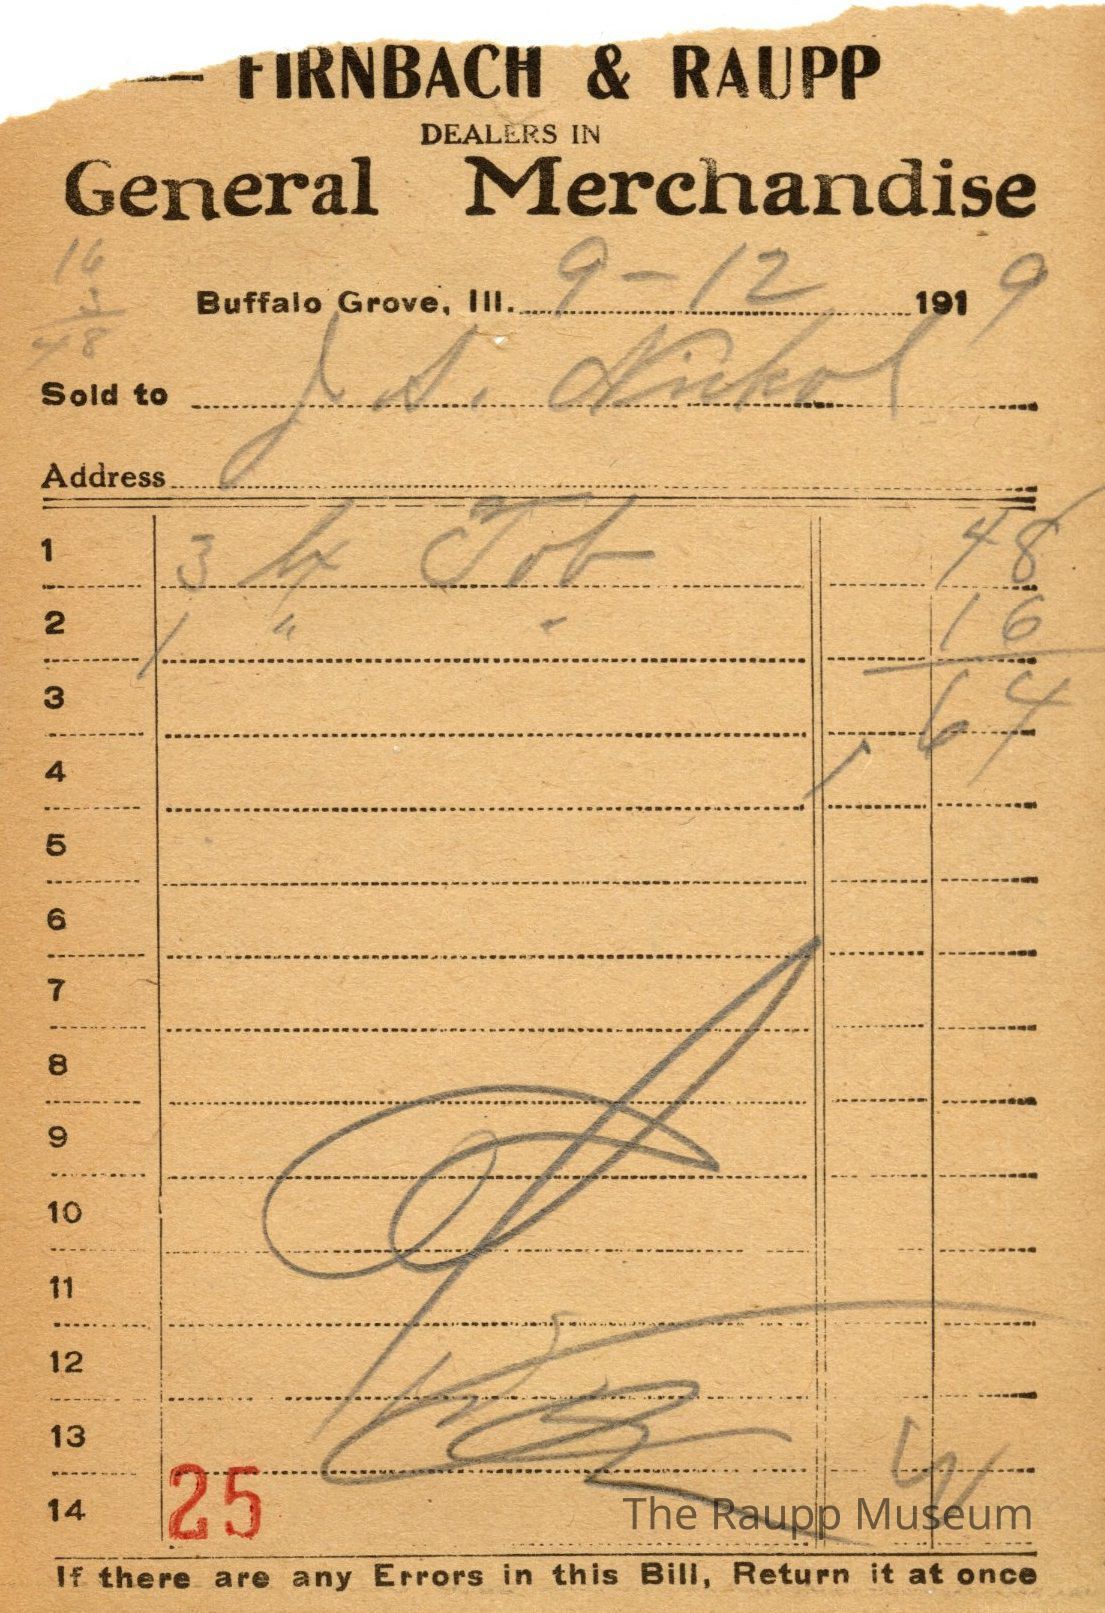 FIRNBACH & RAUPP
DEALERS IN
General Merchandise
16
3
48
Buffalo Grove, Ill. 9-12 1919
Sold to J. S. Nickol
Address
1 3 Tob 48
2 1 " " 16
3 64
4
5
6
7
8
9
10
11
12
13
14 25
The Raupp Museum
If there are any Errors in this Bill, Return it at once